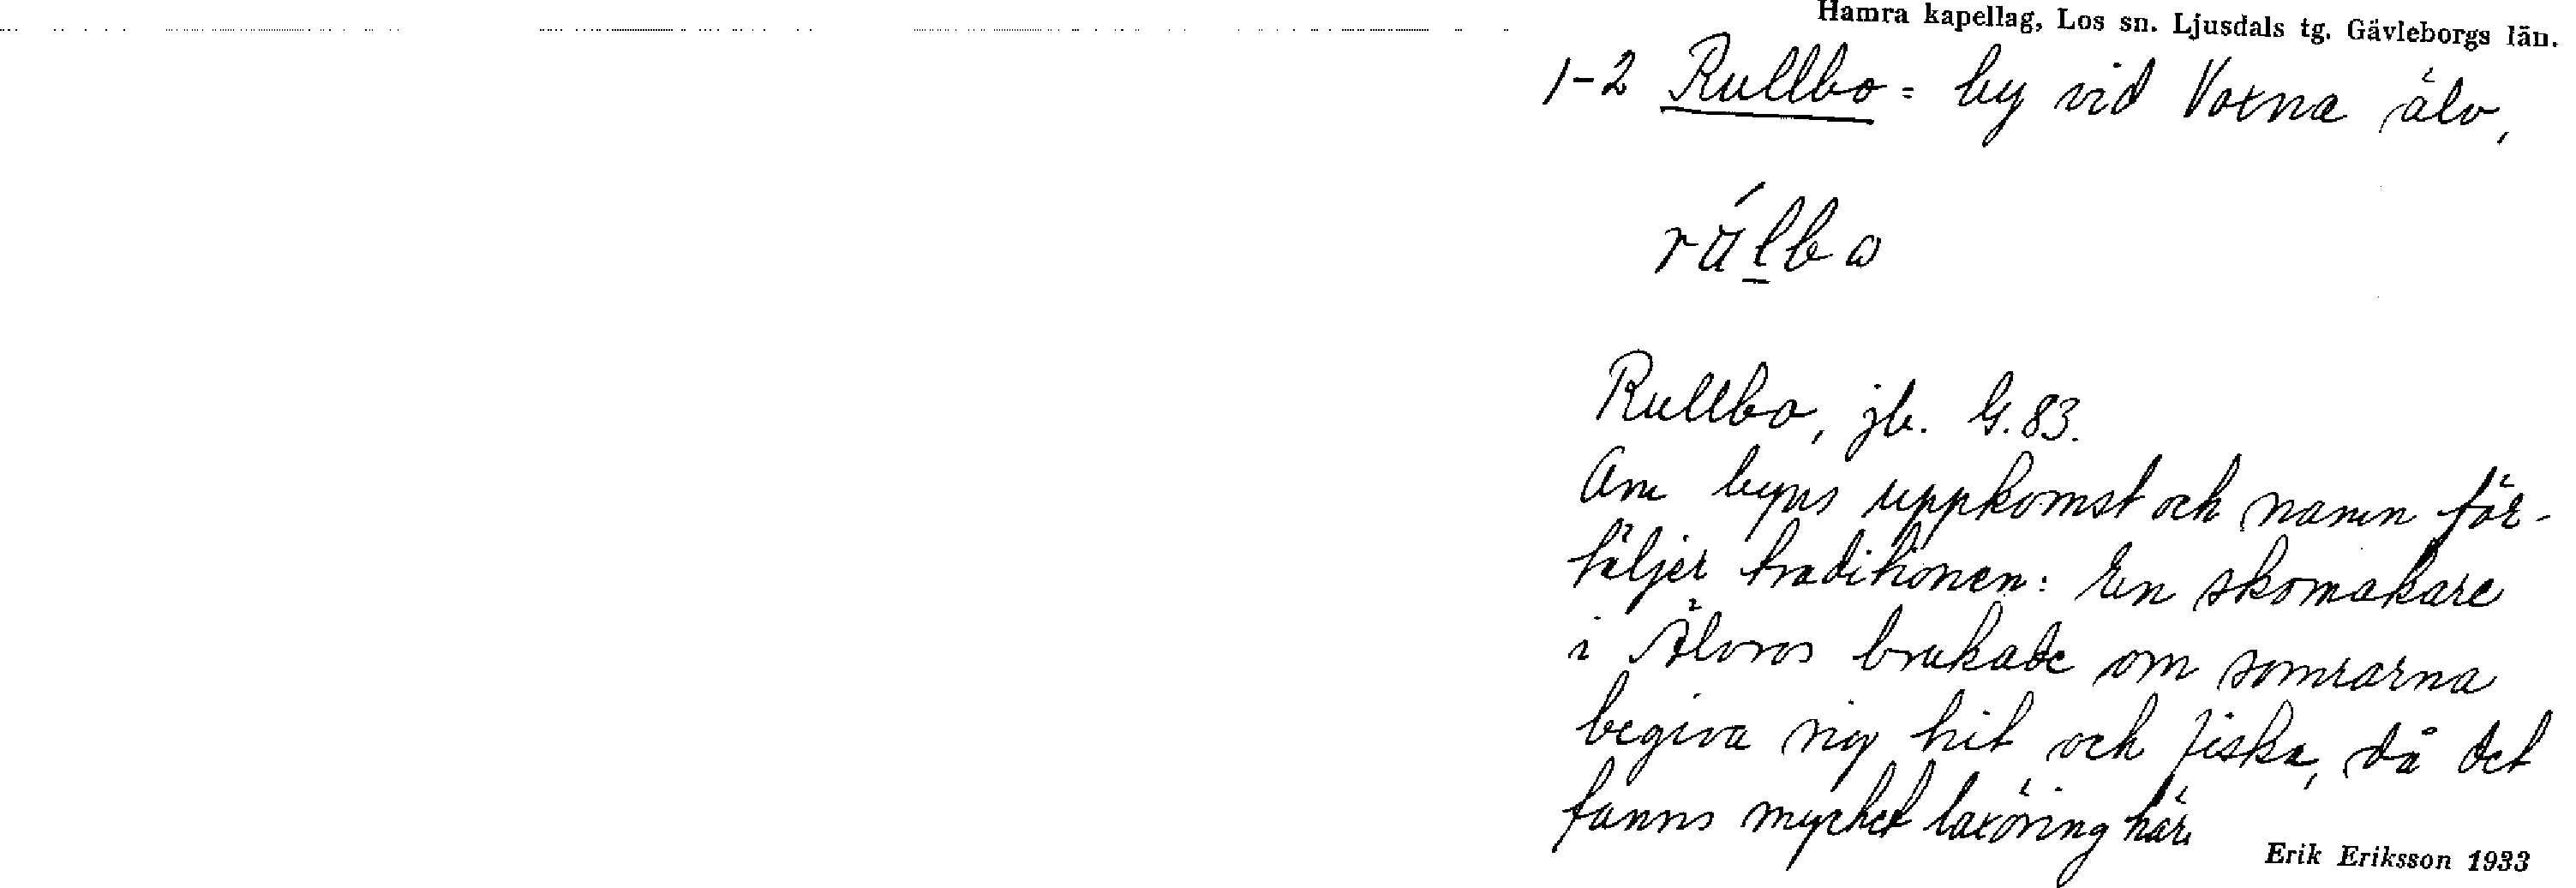 Hamra kapellag, Los sn. Ljusdals tg. Gävleborgs län.
1-2 Rullbo = by vid Voxna älv,
Rullbo, jb. G. 83.
Om byns uppkomst och namn för-
täljer traditionen: En skomakare
i Älvros brukade om somrarna
begiva sig hit och fiska, då det
fanns mycket laxöring här.
Erik Eriksson 1933